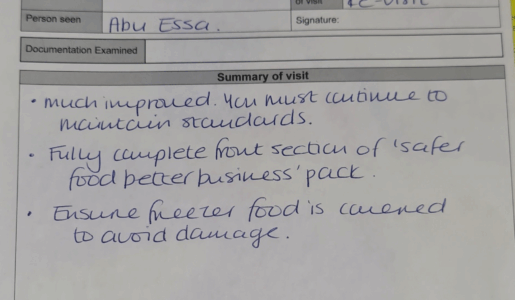 of visit
RE-VISIT
Person seen
Abu Essa.
Signature:
Documentation Examined
Summary of visit
• Much improved. You must continue to
maintain standards.
• Fully complete front section of 'safer
food better business' pack.
• Ensure freezer food is covered
to avoid damage.